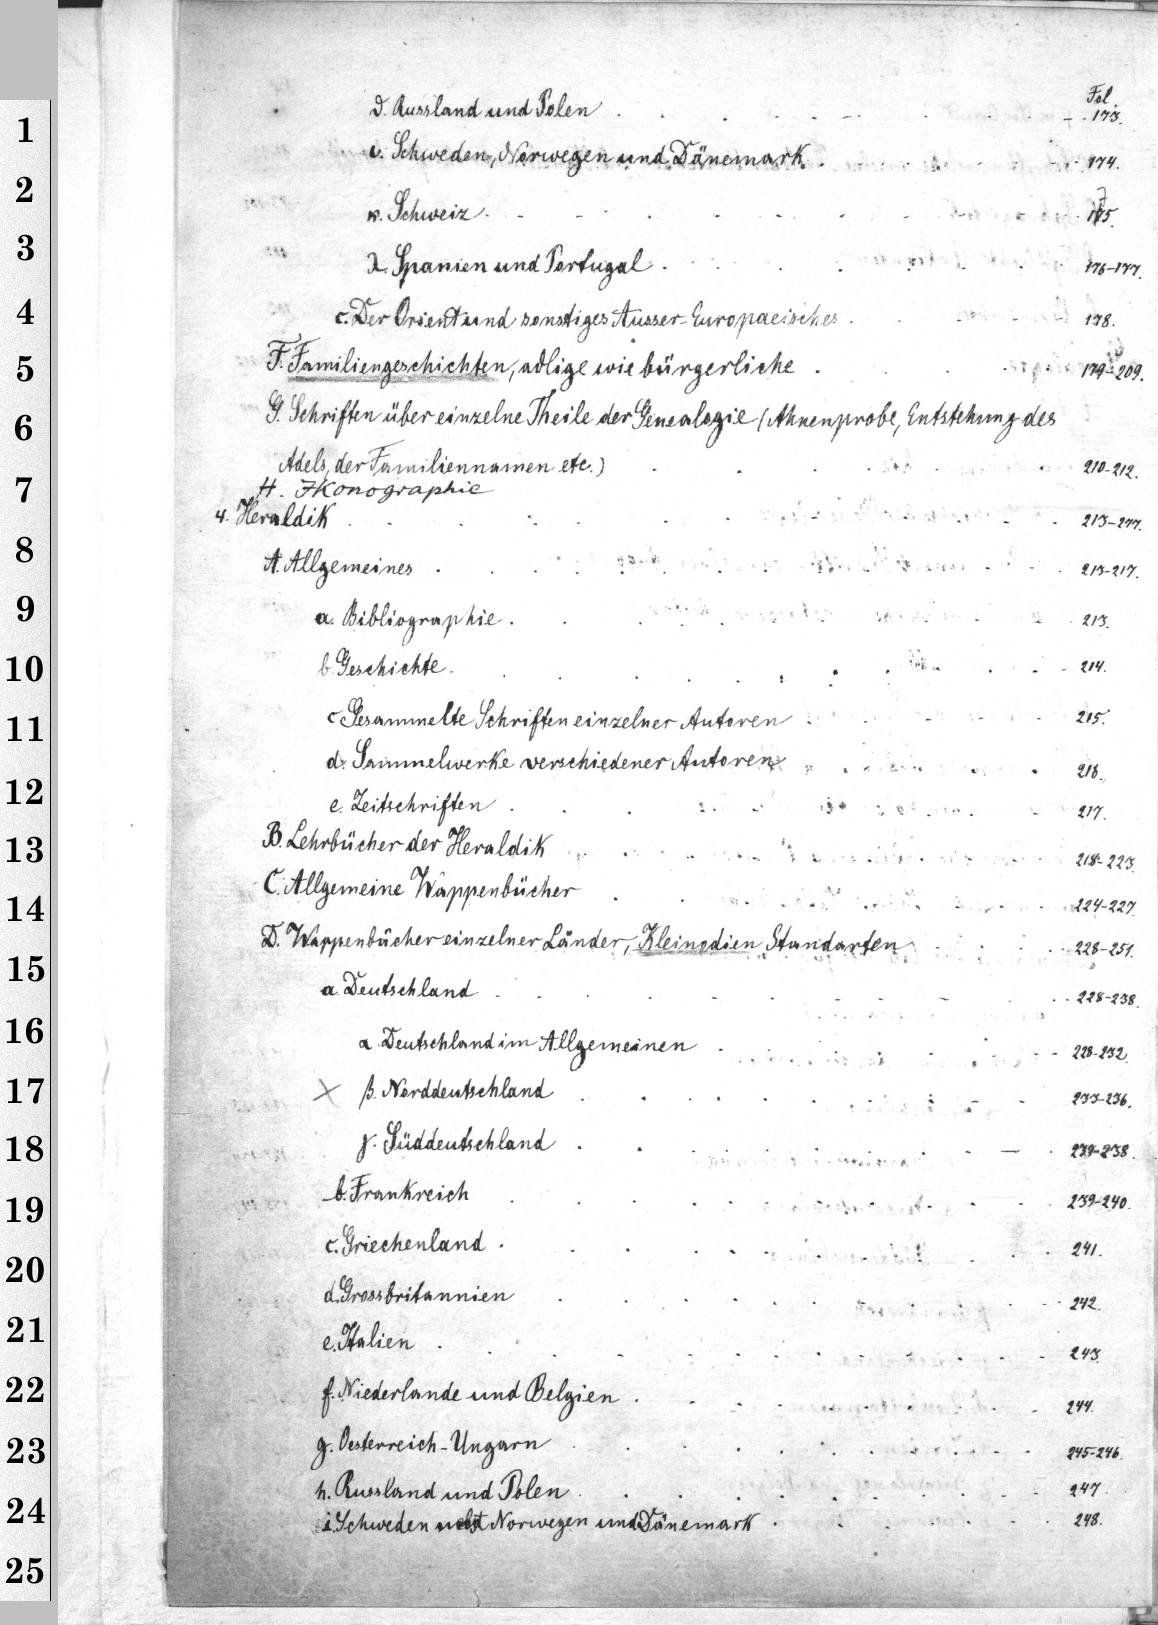 Fol.
ϑ. Russland und Polen . . . . . . . 173.
ι. Schweden, Norwegen und Dänemark . . . 174.
κ. Schweiz . . . . . . . . 175.
λ. Spanien und Portugal . . . . . . 176-177.
c. Der Orient und sonstiges Ausser-Europaeisches . . . 178.
F. Familiengeschichten, adlige wie bürgerliche . . . . 179-209.
G. Schriften über einzelne Theile der Genealogie (Ahnenprobe, Entstehung des
Adels, der Familiennamen etc.) . . . . . 210-212.
H. Ikonographie
4. Heraldik . . . . . . . . 213-277.
A. Allgemeines . . . . . . . 213-217.
a. Bibliographie . . . . . . . 213.
b. Geschichte . . . . . . . 214.
c. Gesammelte Schriften einzelner Autoren . . . 215.
d. Sammelwerke verschiedener Autoren . . . 216.
e. Zeitschriften . . . . . . 217.
B. Lehrbücher der Heraldik . . . . . 218-223.
C. Allgemeine Wappenbücher . . . . . 224-227.
D. Wappenbücher einzelner Länder, Kleinodien Standarten . . . 228-251.
a. Deutschland . . . . . . . 228-238.
α. Deutschland im Allgemeinen . . . . . 228-232.
X β. Norddeutschland . . . . . . 233-236.
γ. Süddeutschland . . . . . . 237-238.
b. Frankreich . . . . . . . 239-240.
c. Griechenland . . . . . . . 241.
d. Grossbritannien . . . . . . . 242.
e. Italien . . . . . . . . 243.
f. Niederlande und Belgien . . . . . . 244.
g. Oesterreich-Ungarn . . . . . . 245-246.
h. Russland und Polen . . . . . . 247.
i. Schweden nebst Norwegen und Dänemark . . . . 248.
1
2
3
4
5
6
7
8
9
10
11
12
13
14
15
16
17
18
19
20
21
22
23
24
25